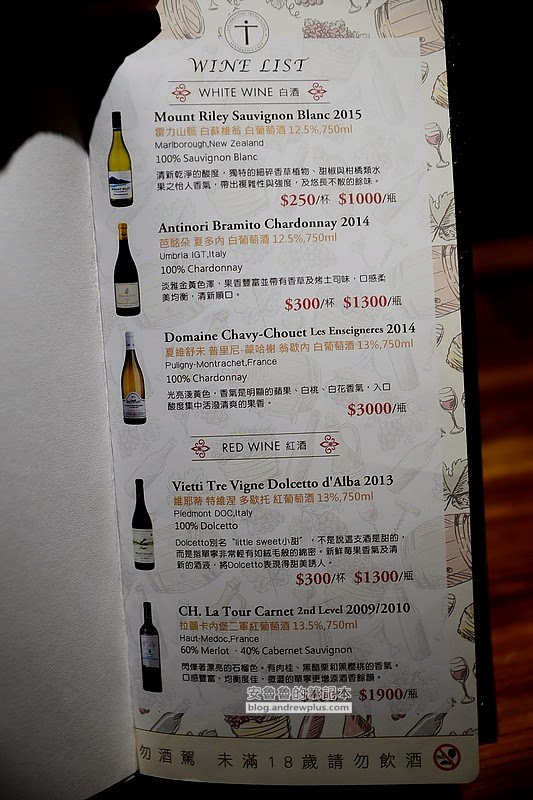 WINE LIST
WHITE WINE 白酒
Mount Riley Sauvignon Blanc 2015
雷力山脈 白蘇維翁 白葡萄酒 12.5%,750ml
Marlborough,New Zealand
100% Sauvignon Blanc
清新乾淨的酸度，獨特的細碎香草植物、甜椒與柑橘類水
果之怡人香氣，帶出複雜性與強度，及悠長不散的餘味。
$250/杯 $1000/瓶
Antinori Bramito Chardonnay 2014
芭酩朵 夏多內 白葡萄酒 12.5%,750ml
Umbria IGT,Italy
100% Chardonnay
淡雅金黃色澤，果香豐富並帶有香草及烤土司味，口感柔
美均衡，清新順口。
$300/杯 $1300/瓶
Domaine Chavy-Chouet Les Enseigneres 2014
夏維舒未 普里尼-蒙哈榭 翁歇內 白葡萄酒 13%,750ml
Puligny-Montrachet,France
100% Chardonnay
光亮淺黃色，香氣是明顯的蘋果、白桃、白花香氣，入口
酸度集中活潑清爽的果香。
$3000/瓶
RED WINE 紅酒
Vietti Tre Vigne Dolcetto d'Alba 2013
維耶蒂 特維涅 多歇托 紅葡萄酒 13%,750ml
Piedmont DOC,Italy
100% Dolcetto
Dolcetto別名"little sweet小甜"，不是說這支酒是甜的，
而是指單寧非常輕有如絨毛般的綿密。新鮮莓果香氣及清
新的酒液，將Dolcetto表現得甜美誘人。
$300/杯 $1300/瓶
CH. La Tour Carnet 2nd Level 2009/2010
拉圖卡內堡二軍紅葡萄酒 13.5%,750ml
Haut-Medoc,France
60% Merlot、40% Cabernet Sauvignon
閃爍著漂亮的石榴色。有肉桂、黑醋栗和黑櫻桃的香氣。
口感豐富，均衡度佳，微澀的單寧更增添酒香餘韻。
$1900/瓶
安魯魯的筆記本
blog.andrewplus.com
勿酒駕 未滿18歲請勿飲酒